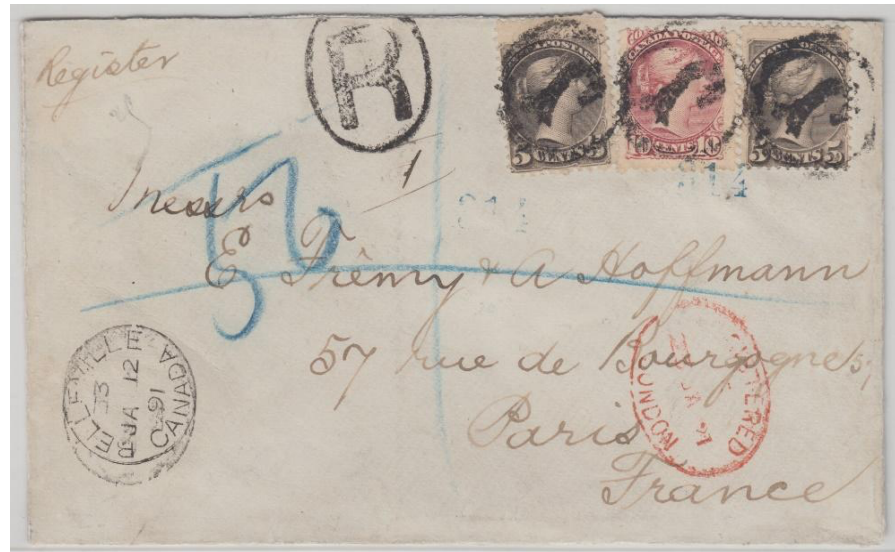 Register
R
CANADA POSTAGE
5 CENTS 5
CANADA POSTAGE
10 CENTS 10
5 CENTS 5
1
Messrs
314
E Frémy & A Hoffmann
57 rue de Bourgogne
Paris
France
BELLEVILLE
JA 12
91
CANADA
REGISTERED
LONDON
91